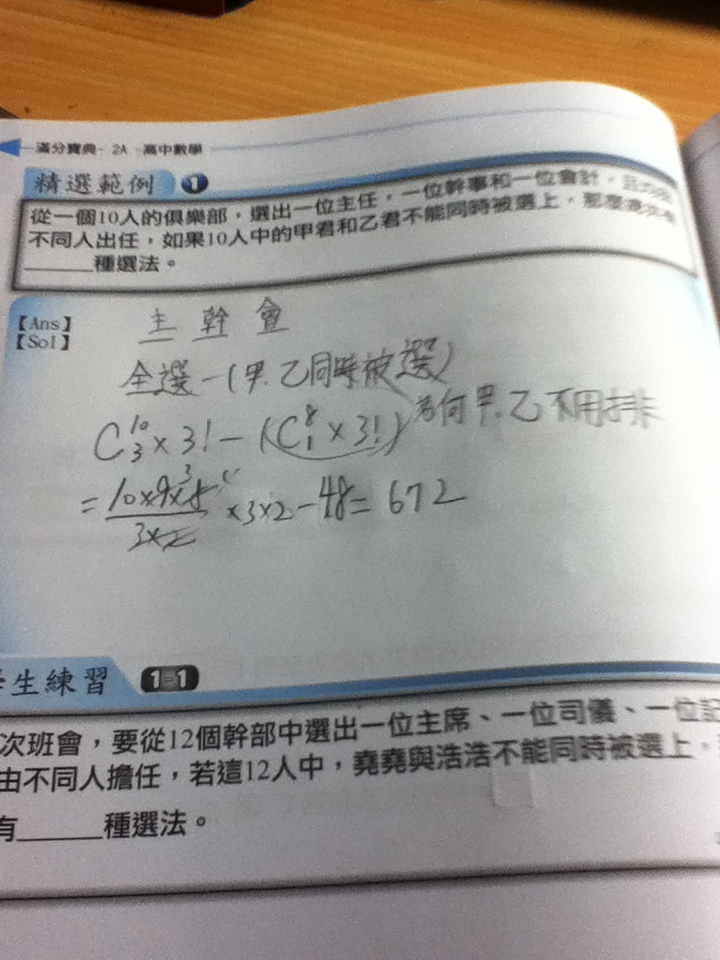 滿分寶典- 2A -高中數學
精選範例 1
從一個10人的俱樂部，選出一位主任，一位幹事和一位會計，且均由
不同人出任，如果10人中的甲君和乙君不能同時被選上，那麼
______種選法。
【Ans】
【Sol】
主 幹 會
全選－(甲.乙同時被選)
C₃¹⁰×3!－(C₁⁸×3!) 為何甲.乙不用排
=10×9×8/3×2 ×3×2－48=672
生練習 1-1
次班會，要從12個幹部中選出一位主席、一位司儀、一位記
由不同人擔任，若這12人中，堯堯與浩浩不能同時被選上，
有______種選法。